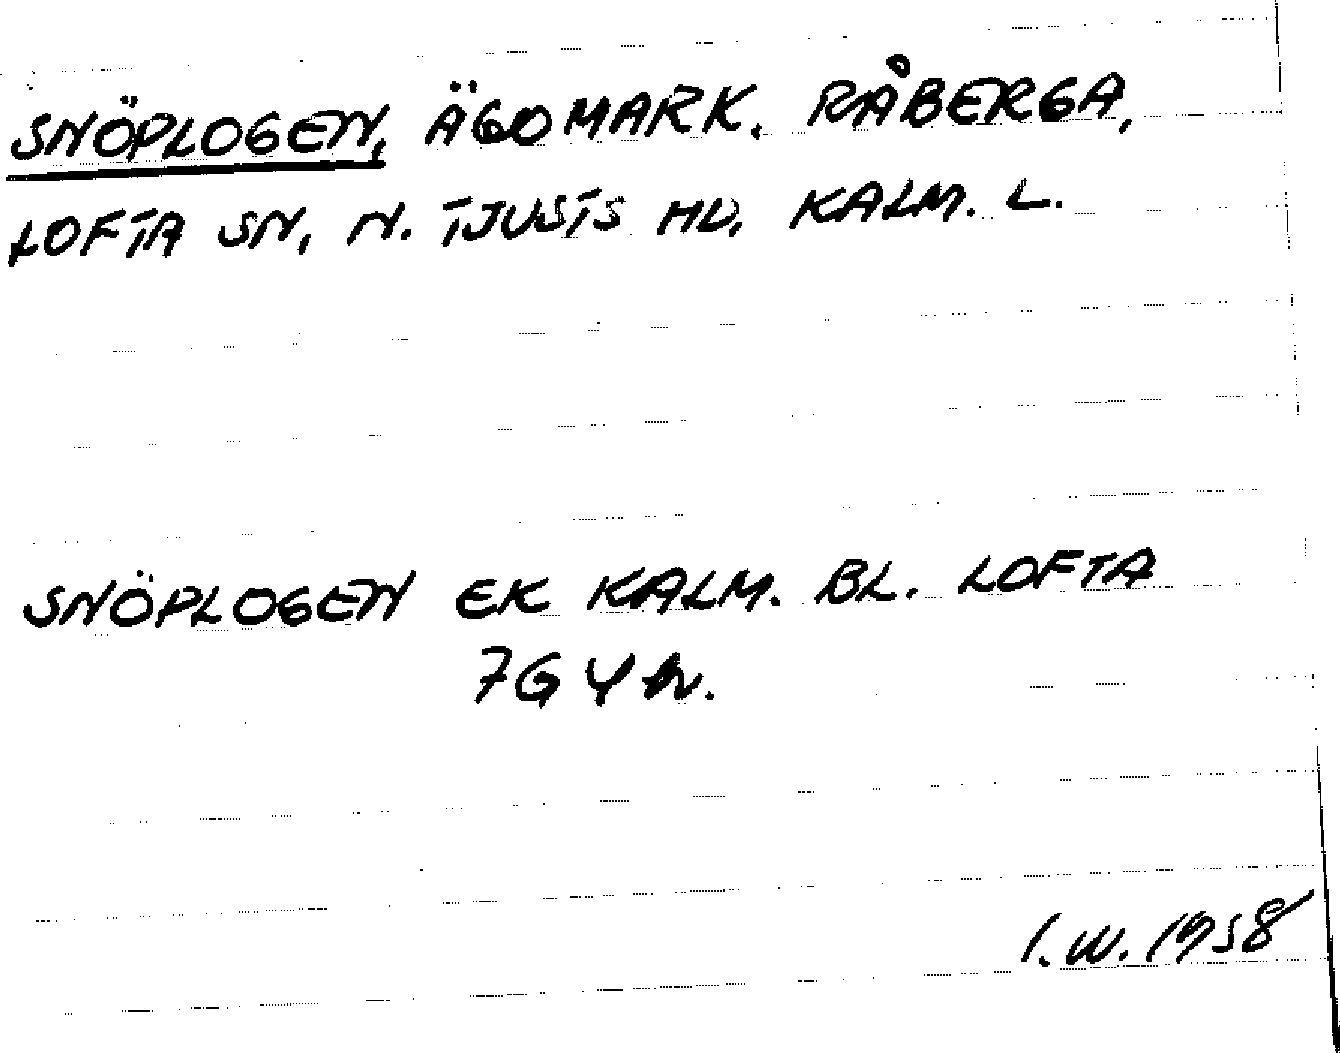 SNÖPLOGEN, ÄGOMARK. RÅBERGA,
LOFTA SN, N. TJUSTS HD. KALM. L.
SNÖPLOGEN EK KALM. BL. LOFTA
7G4h.
I.W. 1958